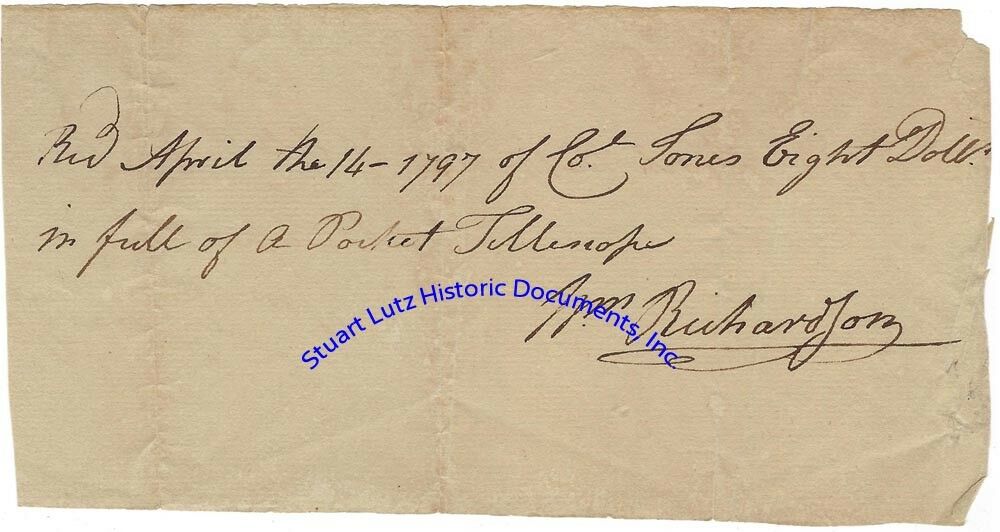 Recd April the 14 - 1797 of Col. Jones Eight Dolls.
in full of A Pocket Tellescope
Wm. Richardson
Stuart Lutz Historic Documents, Inc.